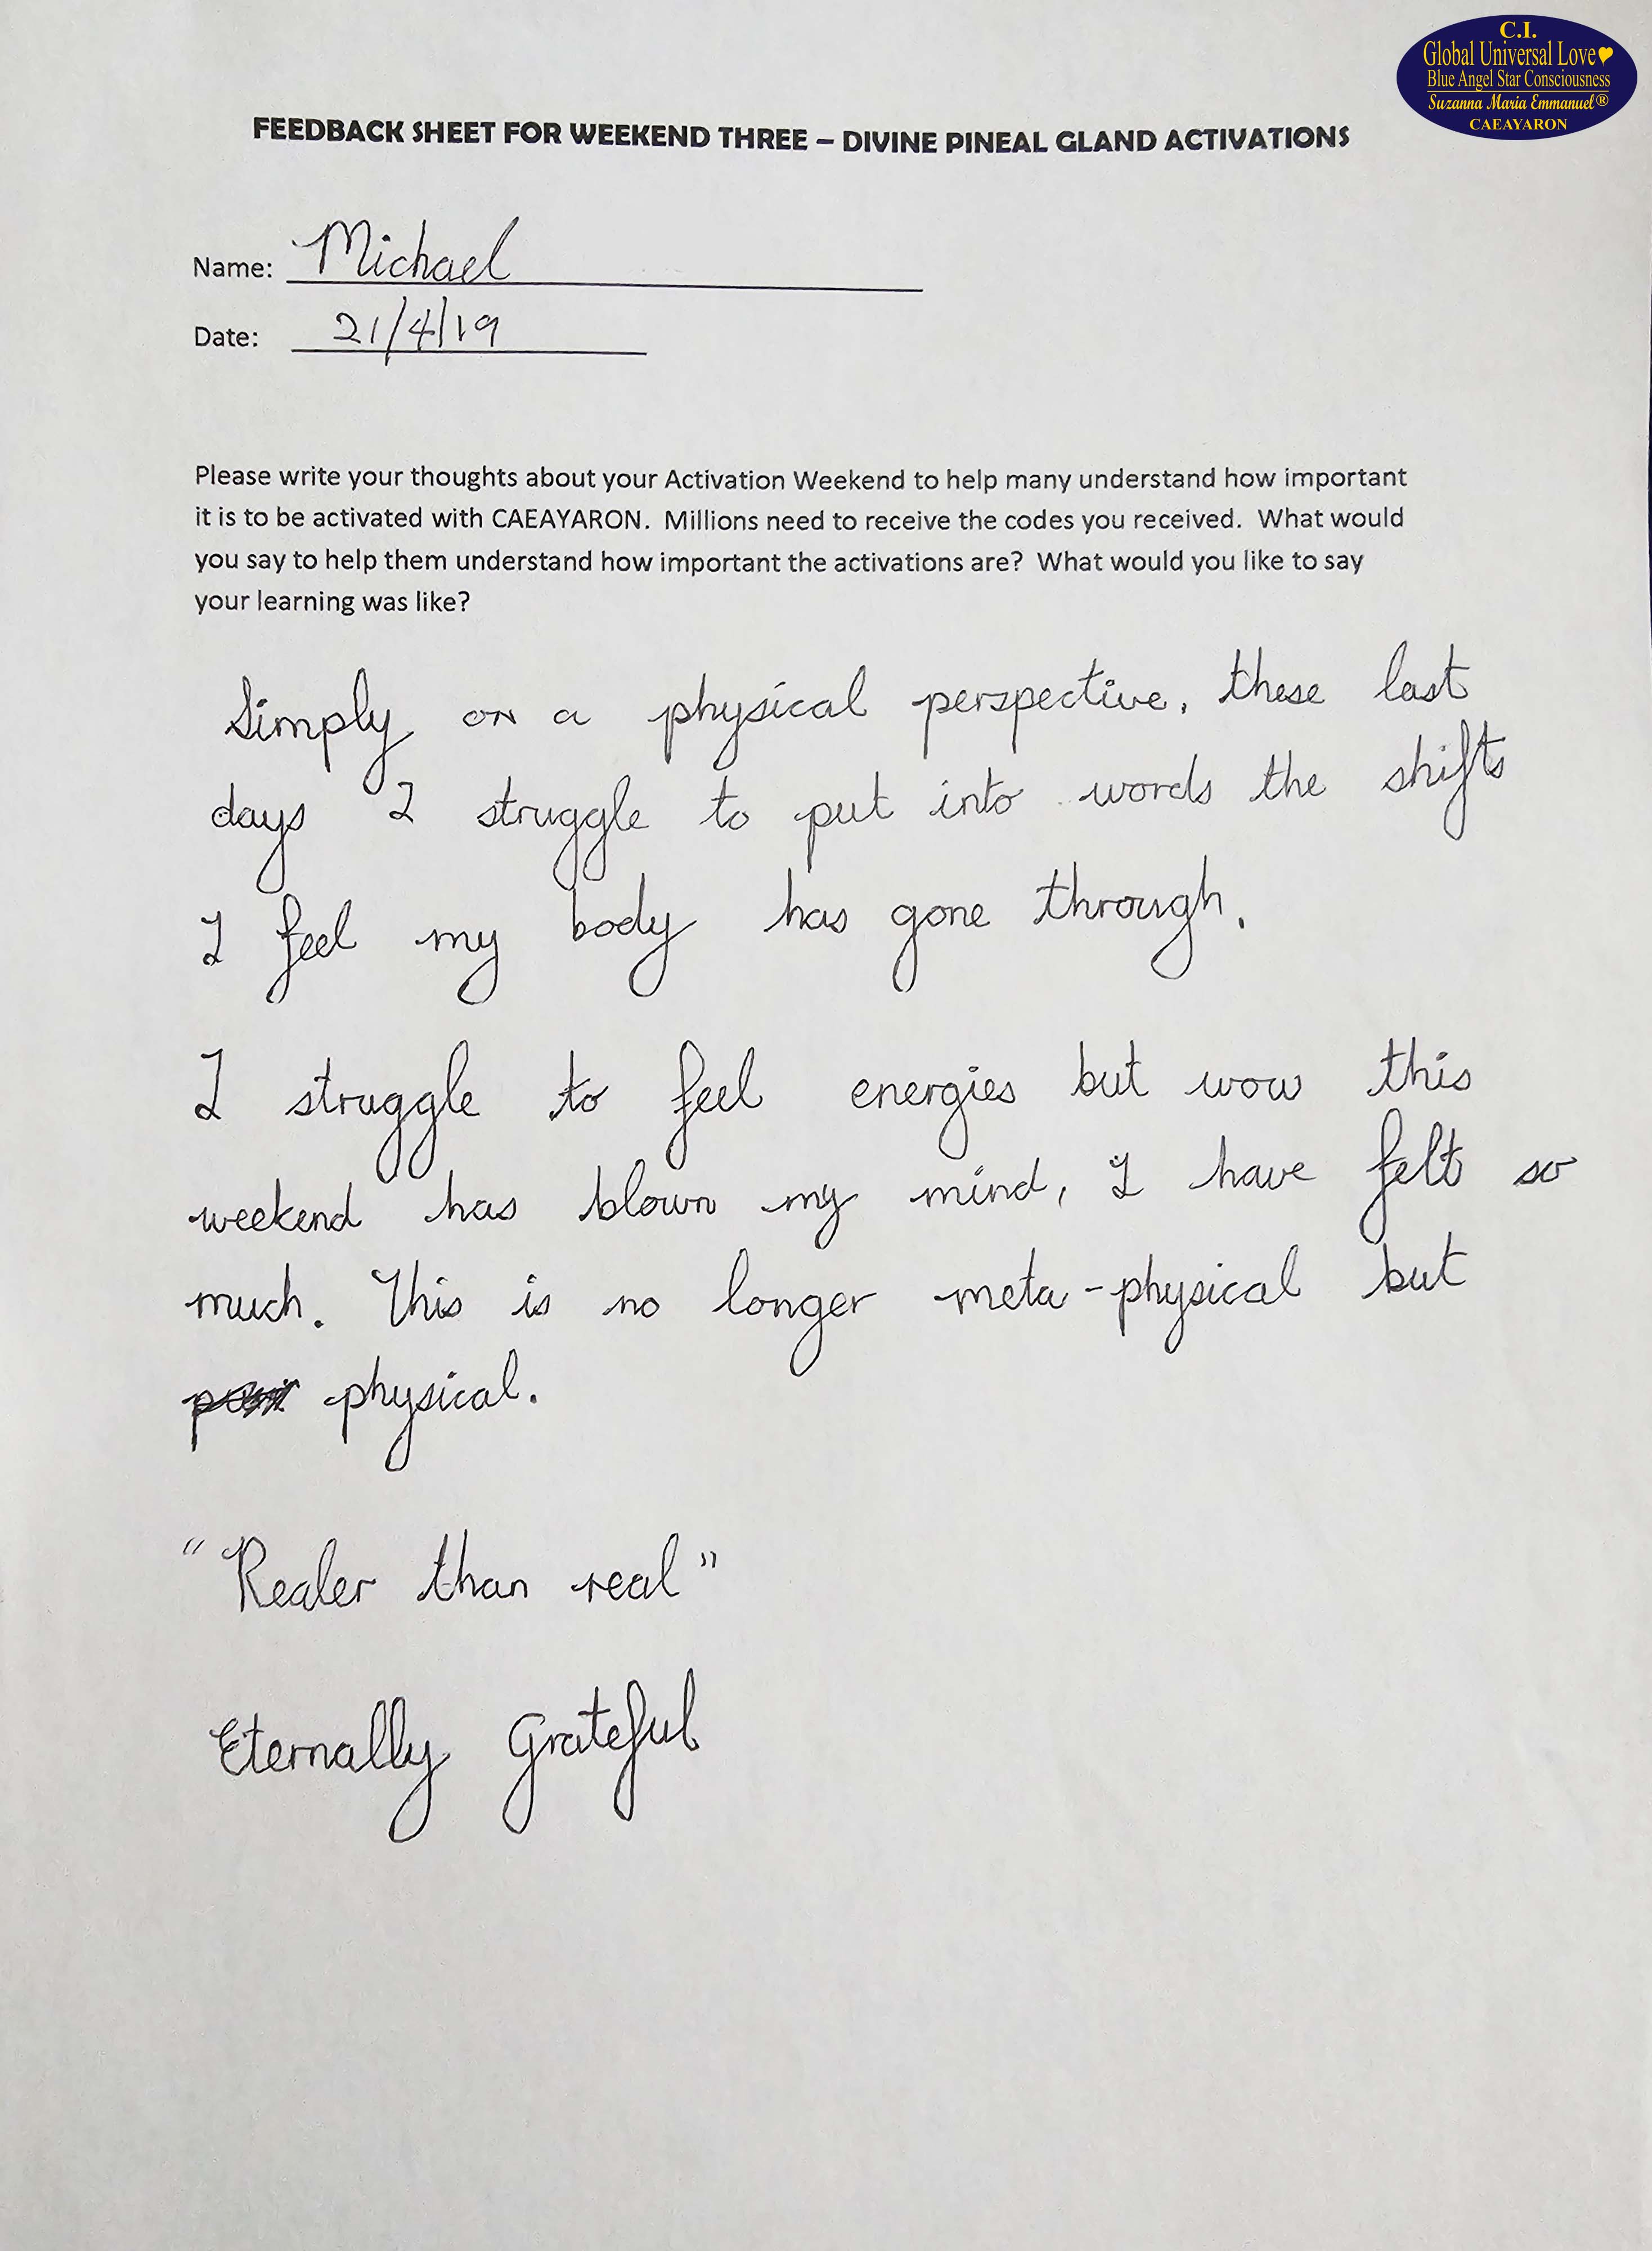 C.I.
Global Universal Love
Blue Angel Star Consciousness
Suzanna Maria Emmanuel®
CAEAYARON
FEEDBACK SHEET FOR WEEKEND THREE – DIVINE PINEAL GLAND ACTIVATIONS
Name: Michael
Date: 21/4/19
Please write your thoughts about your Activation Weekend to help many understand how important
it is to be activated with CAEAYARON. Millions need to receive the codes you received. What would
you say to help them understand how important the activations are? What would you like to say
your learning was like?
Simply on a physical perspective, these last
days I struggle to put into words the shifts
I feel my body has gone through.
I struggle to feel energies but wow this
weekend has blown my mind, I have felt so
much. This is no longer meta-physical but
physical.
"Realer than real"
Eternally Grateful